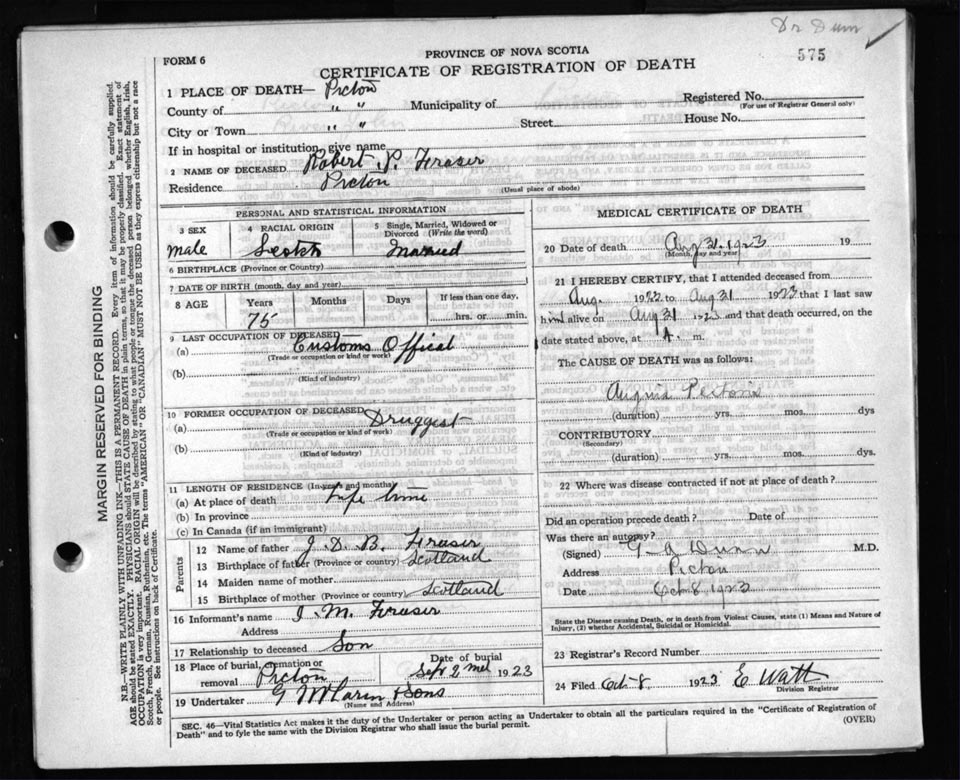 Dr Dunn
575
FORM 6
PROVINCE OF NOVA SCOTIA
CERTIFICATE OF REGISTRATION OF DEATH
1 PLACE OF DEATH— Pictou
County of " " Municipality of Registered No.
(For use of Registrar General only)
City or Town " " Street House No.
If in hospital or institution, give name
2 NAME OF DECEASED Robert P. Fraser
Residence Pictou
(Usual place of abode)
PERSONAL AND STATISTICAL INFORMATION
3 SEX 4 RACIAL ORIGIN 5 Single, Married, Widowed or Divorced (Write the word)
male Scotch Married
6 BIRTHPLACE (Province or Country)
7 DATE OF BIRTH (month, day and year)
8 AGE Years Months Days If less than one day,
75 hrs. or min.
9 LAST OCCUPATION OF DECEASED
(a) Customs Offical
(Trade or occupation or kind of work)
(b)
(Kind of industry)
10 FORMER OCCUPATION OF DECEASED
(a) Druggest
(Trade or occupation or kind of work)
(b)
(Kind of industry)
11 LENGTH OF RESIDENCE (In years and months)
(a) At place of death Life time
(b) In province
(c) In Canada (if an immigrant)
Parents
12 Name of father J. D. B. Fraser
13 Birthplace of father (Province or country) Scotland
14 Maiden name of mother
15 Birthplace of mother (Province or country) Scotland
16 Informant's name J. M. Fraser
Address
17 Relationship to deceased Son
18 Place of burial, cremation or removal Pictou Date of burial Sept 2nd 1923
19 Undertaker G McLaren & Sons
(Name and Address)
MEDICAL CERTIFICATE OF DEATH
20 Date of death Aug 31. 1923 19
(Month, day and year)
21 I HEREBY CERTIFY, that I attended deceased from
Aug. 1922 to Aug 31 1923 that I last saw
him alive on Aug 31 1923 and that death occurred, on the
date stated above, at A. m.
The CAUSE OF DEATH was as follows:
Angina Pectoris
(duration) yrs. mos. dys
CONTRIBUTORY
(Secondary)
(duration) yrs. mos. dys.
22 Where was disease contracted if not at place of death?
Did an operation precede death? Date of
Was there an autopsy?
(Signed) G. A. Dunn M.D.
Address Pictou
Date Oct 8 1923
State the Disease causing Death, or in death from Violent Causes, state (1) Means and Nature of
Injury, (2) whether Accidental, Suicidal or Homicidal.
23 Registrar's Record Number
24 Filed Oct-8 1923 E Watt
Division Registrar
SEC. 46—Vital Statistics Act makes it the duty of the Undertaker or person acting as Undertaker to obtain all the particulars required in the "Certificate of Registration of
Death" and to fyle the same with the Division Registrar who shall issue the burial permit. (OVER)
MARGIN RESERVED FOR BINDING
N.B.—WRITE PLAINLY WITH UNFADING INK—THIS IS A PERMANENT RECORD. Every item of information should be carefully supplied.
AGE should be stated EXACTLY. PHYSICIANS should STATE CAUSE OF DEATH in plain terms, so that it may be properly classified. Exact statement of
OCCUPATION is very important. RACIAL ORIGIN will be described by stating to what people or tongue the deceased person belonged whether English, Irish,
Scotch, French, German, Russian, Ruthenian, etc. The terms "AMERICAN" OR "CANADIAN" MUST NOT BE USED as they express citizenship but not a race
or people. See instructions on back of Certificate.